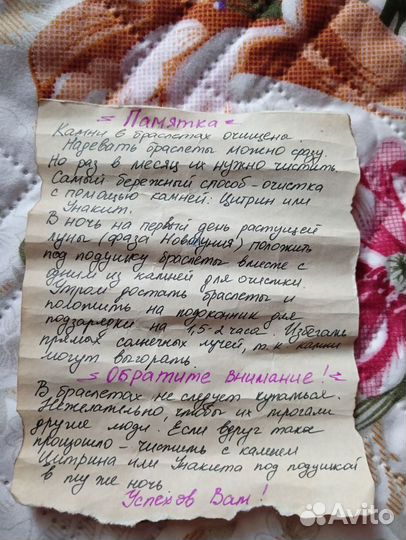 Памятка
Камни в браслетах очищены.
Надевать браслеты можно сразу.
Но раз в месяц их нужно чистить
Самый бережный способ - очистка
с помощью камней: Цитрин или
Унакит.
В ночь на первый день растущей
луны (фаза Новолуния) положить
под подушку браслеты вместе с
одним из камней для очистки.
Утром достать браслеты и
положить на подоконник для
подзарядки на 1,5-2 часа. Избегать
прямых солнечных лучей, т.к камни
могут выгорать
Обратите внимание!
В браслетах не следует купаться.
Нежелательно, чтобы их трогали
другие люди. Если вдруг такое
произошло - чистить с камнем
Цитрина или Унакита под подушкой
в ту же ночь
Успехов Вам!
Avito